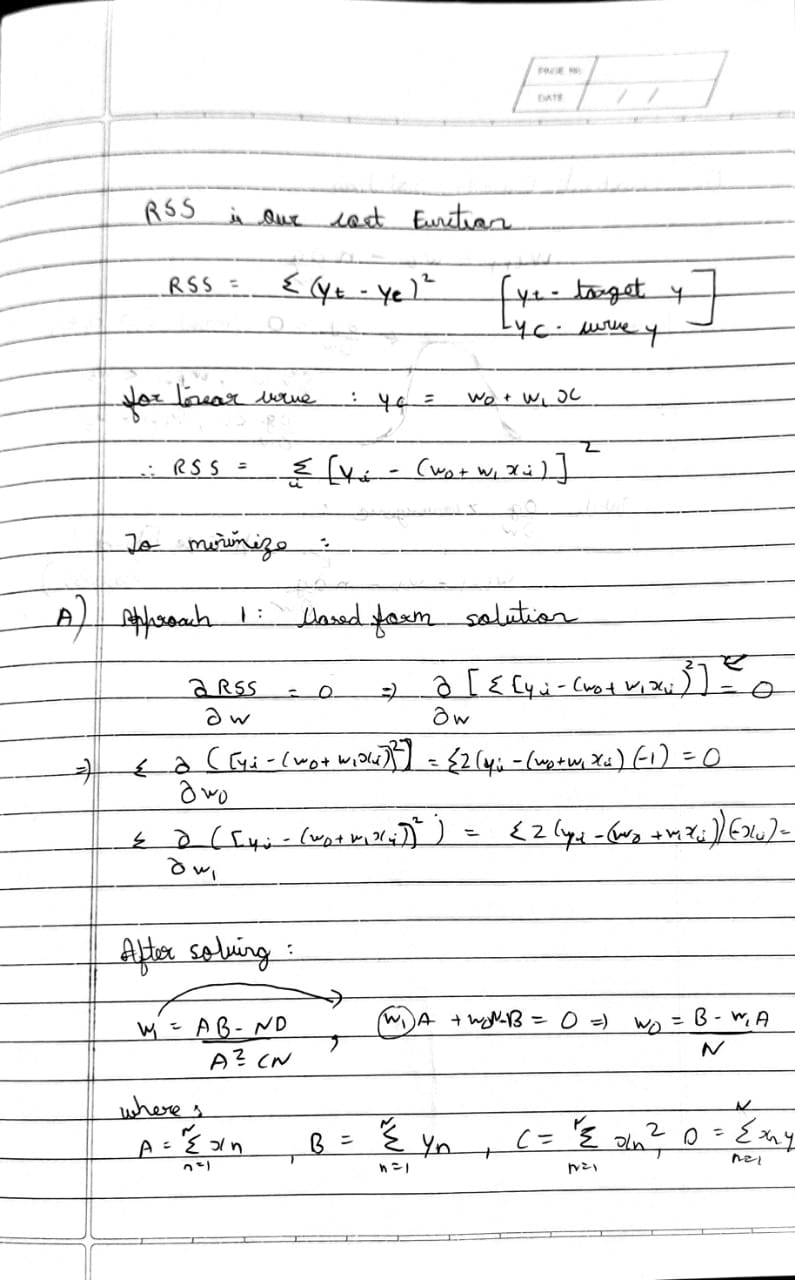 PAGE NO.
DATE / /
RSS is our cost Function
RSS = Σ (yt - yc)² [yt - target y
yc - curve y]
for linear curve : yc = w0 + w1 x
∴ RSS = Σ i [yi - (w0 + w1 xi)]²
To minimize :
A) Approach 1: Closed form solution
∂RSS/∂w = 0 ⇒ ∂/∂w [Σ [yi - (w0 + w1xi)²] = 0
⇒ Σ ∂/∂w0 ([yi - (w0 + w1xi)²] = Σ2(yi - (w0+w1xi) (-1) = 0
Σ ∂/∂w1 ([yi - (w0 + w1xi)]²) = Σ2(yi - (w0 + w1xi))(-xi) =
After solving :
w1 = AB - ND / A² - CN , w1A + w0N - B = 0 ⇒ w0 = B - w1A / N
where,
A = Σ(n=1 to N) xn , B = Σ(n=1 to N) yn , C = Σ(n=1 to N) xn², D = Σ(n=1 to N) xny